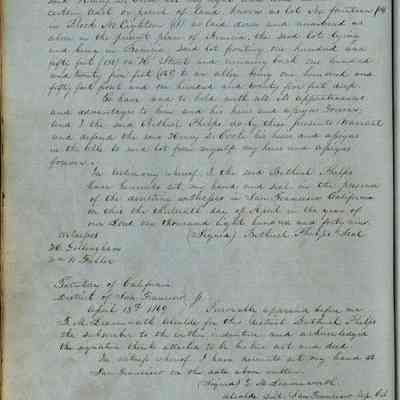 certain
lot or parcel of land, known as Lot No fourteen (14
in Block No Eighteen (18) as laid down and numbered as
above in the present plan of Benicia, the said lot lying
and being in Benicia, said lot fronting one hundred and
fifty feet (150) on H Street and running back one hundred
and twenty five feet (125) to an alley being one hundred and
fifty feet front and one hundred and twenty five feet deep.
To have and to hold with all its appurtenances
and advantages to him and his heirs and assigns forever,
and I the said Bethuel Phelps do by these presents Warrant
and defend the said Henry D. Cooke his heirs and assigns
in the title to said lot from myself my heirs and assigns
forever.
In testimony whereof I the said Bethuel Phelps
have hereunto set my hand and seal in the presence
of the assisting witnesses in San Francisco California
on this the thirteenth day of April in the year of
our Lord one thousand eight hundred and forty nine.
Witnesses (Signed) Bethuel Phelps Seal
Gillingham
Wm W Fuller
Territory of California
District of San Francisco
April 13th 1849 Personally appeared before me
T. M. Leavenworth Alcalde for this District Bethuel Phelps
the subscriber to the within indenture and acknowledged
the signature thereto attached to be his act and deed.
In witness whereof I have hereunto set my hand at
San Francisco on the date above written
(Signed) T. M. Leavenworth
Alcalde Dist. San Francisco Up. Cal